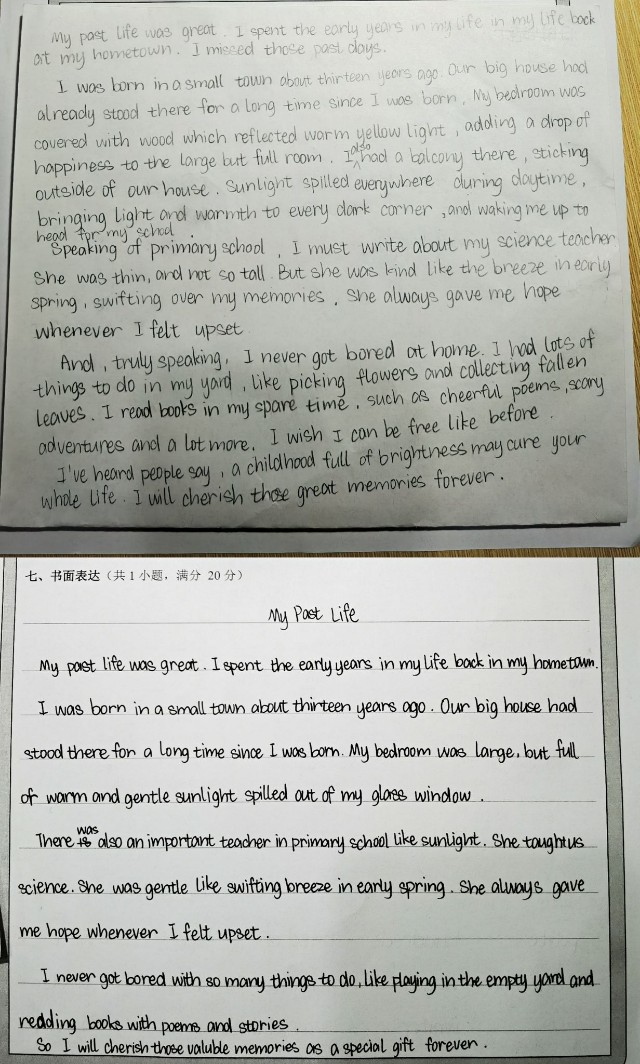 My past life was great. I spent the early years in my life in my life back
at my hometown. I missed those past days.
I was born in a small town about thirteen years ago. Our big house had
already stood there for a long time since I was born. My bedroom was
covered with wood which reflected warm yellow light, adding a drop of
happiness to the large but full room. I also had a balcony there, sticking
outside of our house. Sunlight spilled everywhere during daytime,
bringing light and warmth to every dark corner, and waking me up to
head for my school.
Speaking of primary school, I must write about my science teacher
She was thin, and not so tall. But she was kind like the breeze in early
spring, swifting over my memories. She always gave me hope
whenever I felt upset
And, truly speaking, I never got bored at home. I had lots of
things to do in my yard, like picking flowers and collecting fallen
leaves. I read books in my spare time, such as cheerful poems, scary
adventures and a lot more. I wish I can be free like before.
I've heard people say, a childhood full of brightness may cure your
whole life. I will cherish those great memories forever.
七、书面表达（共 1 小题，满分 20 分）
My Past Life
My past life was great. I spent the early years in my life back in my hometown.
I was born in a small town about thirteen years ago. Our big house had
stood there for a long time since I was born. My bedroom was large, but full
of warm and gentle sunlight spilled out of my glass window.
There was also an important teacher in primary school like sunlight. She taught us
science. She was gentle like swifting breeze in early spring. She always gave
me hope whenever I felt upset.
I never got bored with so many things to do, like playing in the empty yard and
redding books with poems and stories.
So I will cherish those valuble memories as a special gift forever.